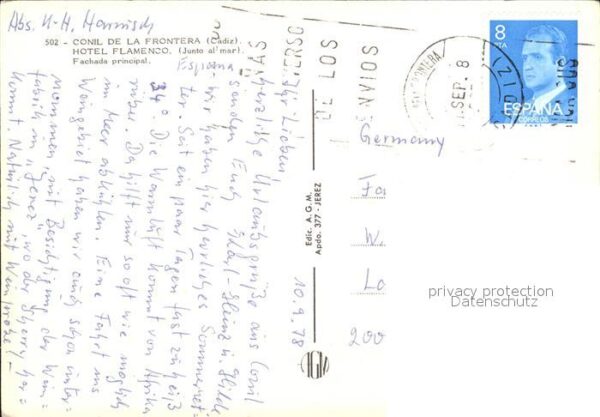 Abs. K-H. Harnisch
502 - CONIL DE LA FRONTERA (Cadiz).
HOTEL FLAMENCO. (Junto al mar).
Fachada principal.
España
10.9.78
Ihr Lieben,
Herzliche Urlaubsgrüße aus Conil
senden Euch Karl-Heinz u. Hilde
wir haben hier herrliches Sommerwet=
ter. Seit ein paar Tagen fast zu heiß
34° Die Warmluft kommt von Afrika
rüber. Da hilft nur so oft wie möglich
im Meer abkühlen. Eine Fahrt ins
Weingebiet haben wir auch schon unter=
nommen mit Besichtigung der Wein=
fabrik in "Jerez", wo der Sherry her=
kommt. Natürlich mit Weinprobe! -
Edic. A.G.M.
Apdo. 377 - JEREZ
AGM
DE LOS
ENVIOS
SEP. 8
8
PTA
ESPAÑA
CORREOS
Germany
Fa
W
La
200
privacy protection
Datenschutz